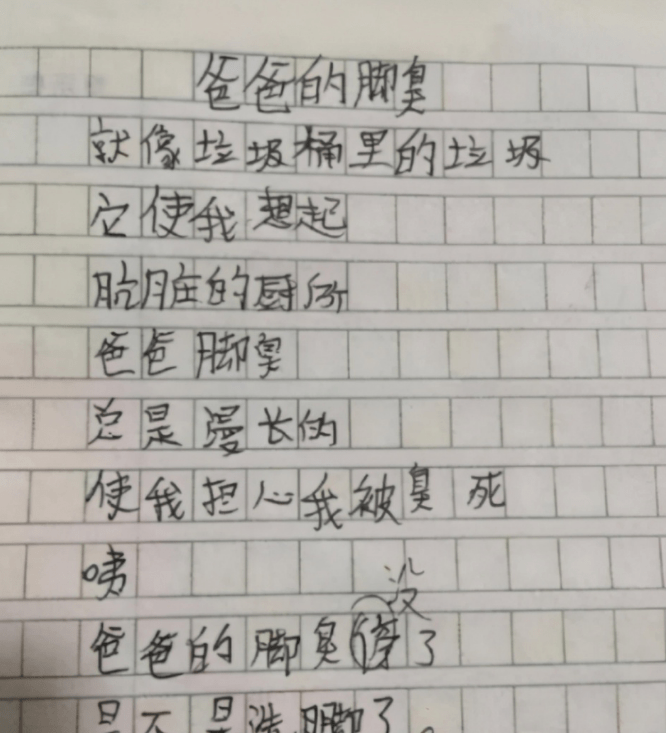 爸爸的脚臭
就像垃圾桶里的垃圾
它使我想起
肮脏的厨所
爸爸脚臭
总是漫长的
使我担心我被臭死
咦
爸爸的脚臭停没了
是不是洗脚了。